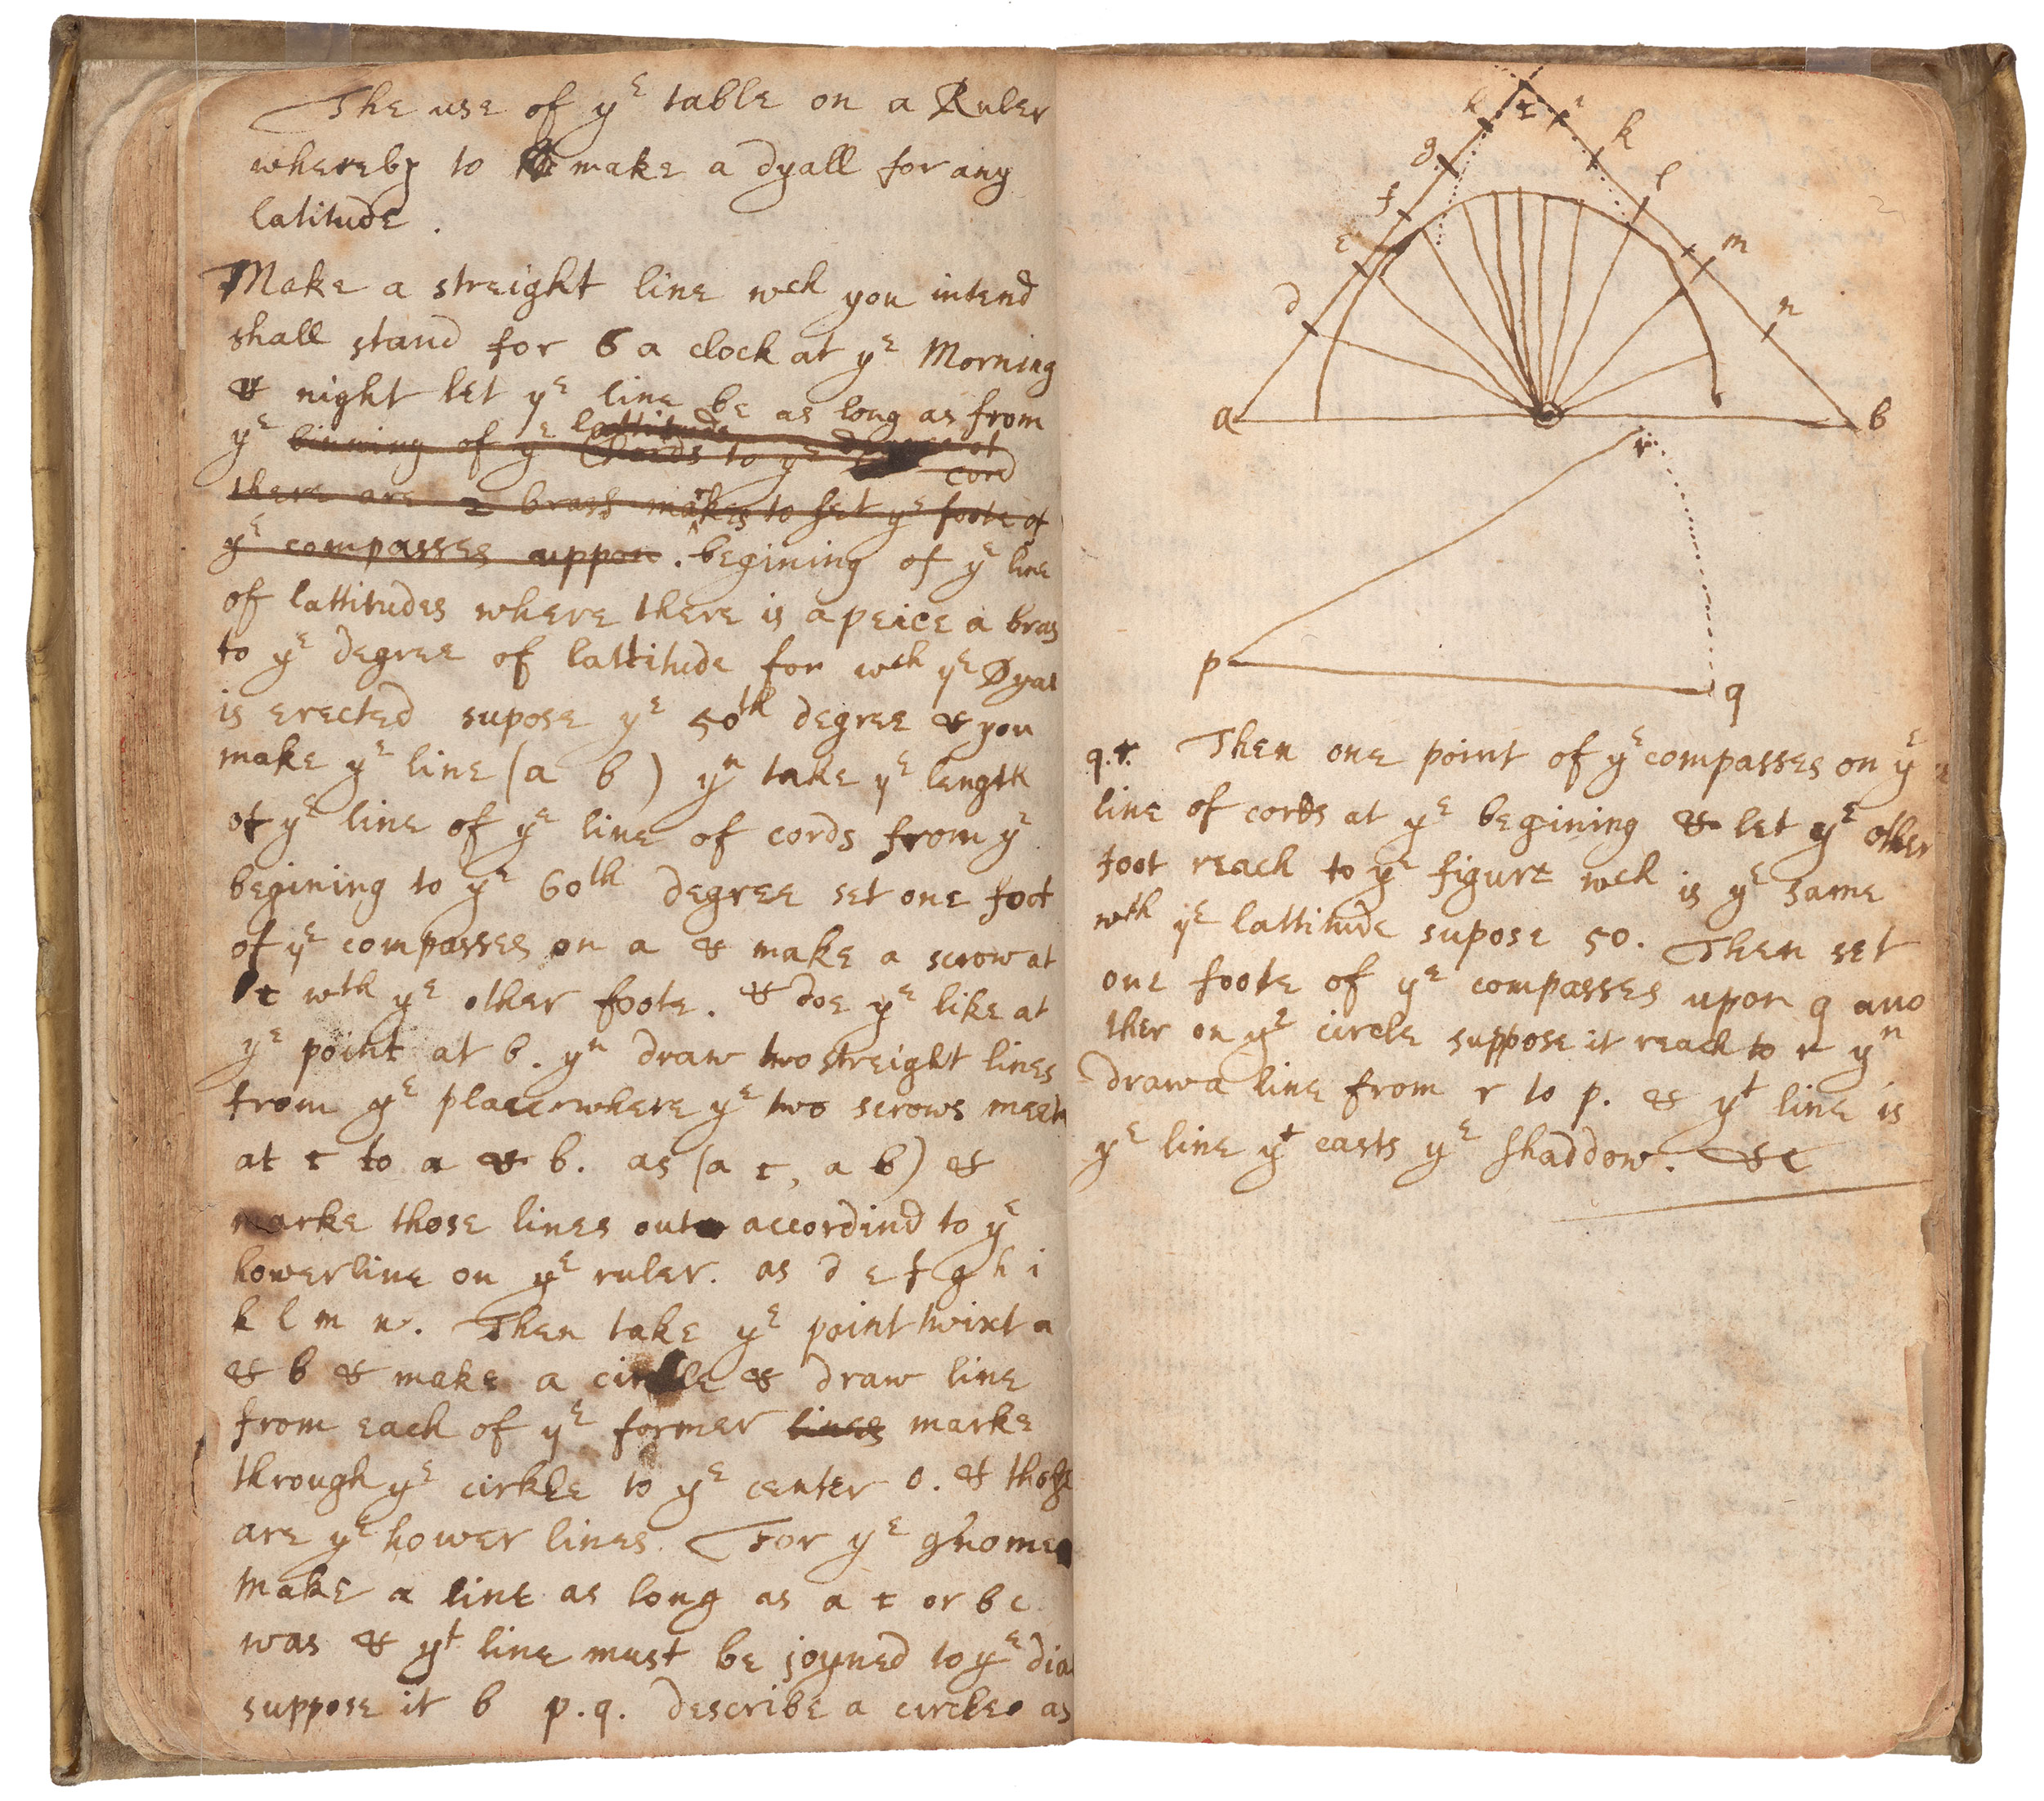 The use of yᵉ table on a Ruler
whereby to make a dyall for any
latitude.
Make a streight line wch you intend
shall stand for 6 a clock at yᵉ Morning
& night let yᵉ line be as long as from
lattitude
yᵉ binning of yᵉ Chords to yᵉ
cord
there are 2 brass markes to set yᵉ foote of
yᵉ compasses uppon. begining of yᵉ line
of lattitudes where there is a peice a bras
to yᵉ degree of lattitude for wch yᵉ Dyal
is erected supose yᵉ 50th degree & you
make yᵉ line (a b) yⁿ take yᵉ length
of yᵉ line of yᵉ line of cords from yᵉ
begining to yᵉ 60th degree set one foot
of yᵉ compasses on a & make a scrow at
c wth yᵉ other foote. & doe yᵉ like at
yᵉ point at b. yⁿ draw two streight lines
from yᵉ place where yᵉ two scrows meete
at c to a & b. as (a c, a b) &
marke those lines out accordind to yᵉ
hower line on yᵉ ruler. as d e f g h i
k l m n. Then take yᵉ point twixt a
& b & make a circle & draw line
from each of yᵉ former lines marke
through yᵉ cirkle to yᵉ center o. & those
are yᵉ hower lines. For yᵉ gnomen
make a line as long as a c or b c
was & yᵗ line must be joyned to yᵉ dial
suppose it b p.q. describe a circke as
h c i
g k
f l
e m
d n
a b
r
p q
q.r. Then one point of yᵉ compasses on yᵉ
line of cords at yᵉ begining & let yᵉ other
foot reach to yᵉ figure wch is yᵉ same
wth yᵉ lattitude supose 50. Then set
one foote of yᵉ compasses upon q ano
ther on yᵉ circle suppose it reach to r yⁿ
draw a line from r to p. & yᵗ line is
yᵉ line yᵗ casts yᵉ shaddow. &c